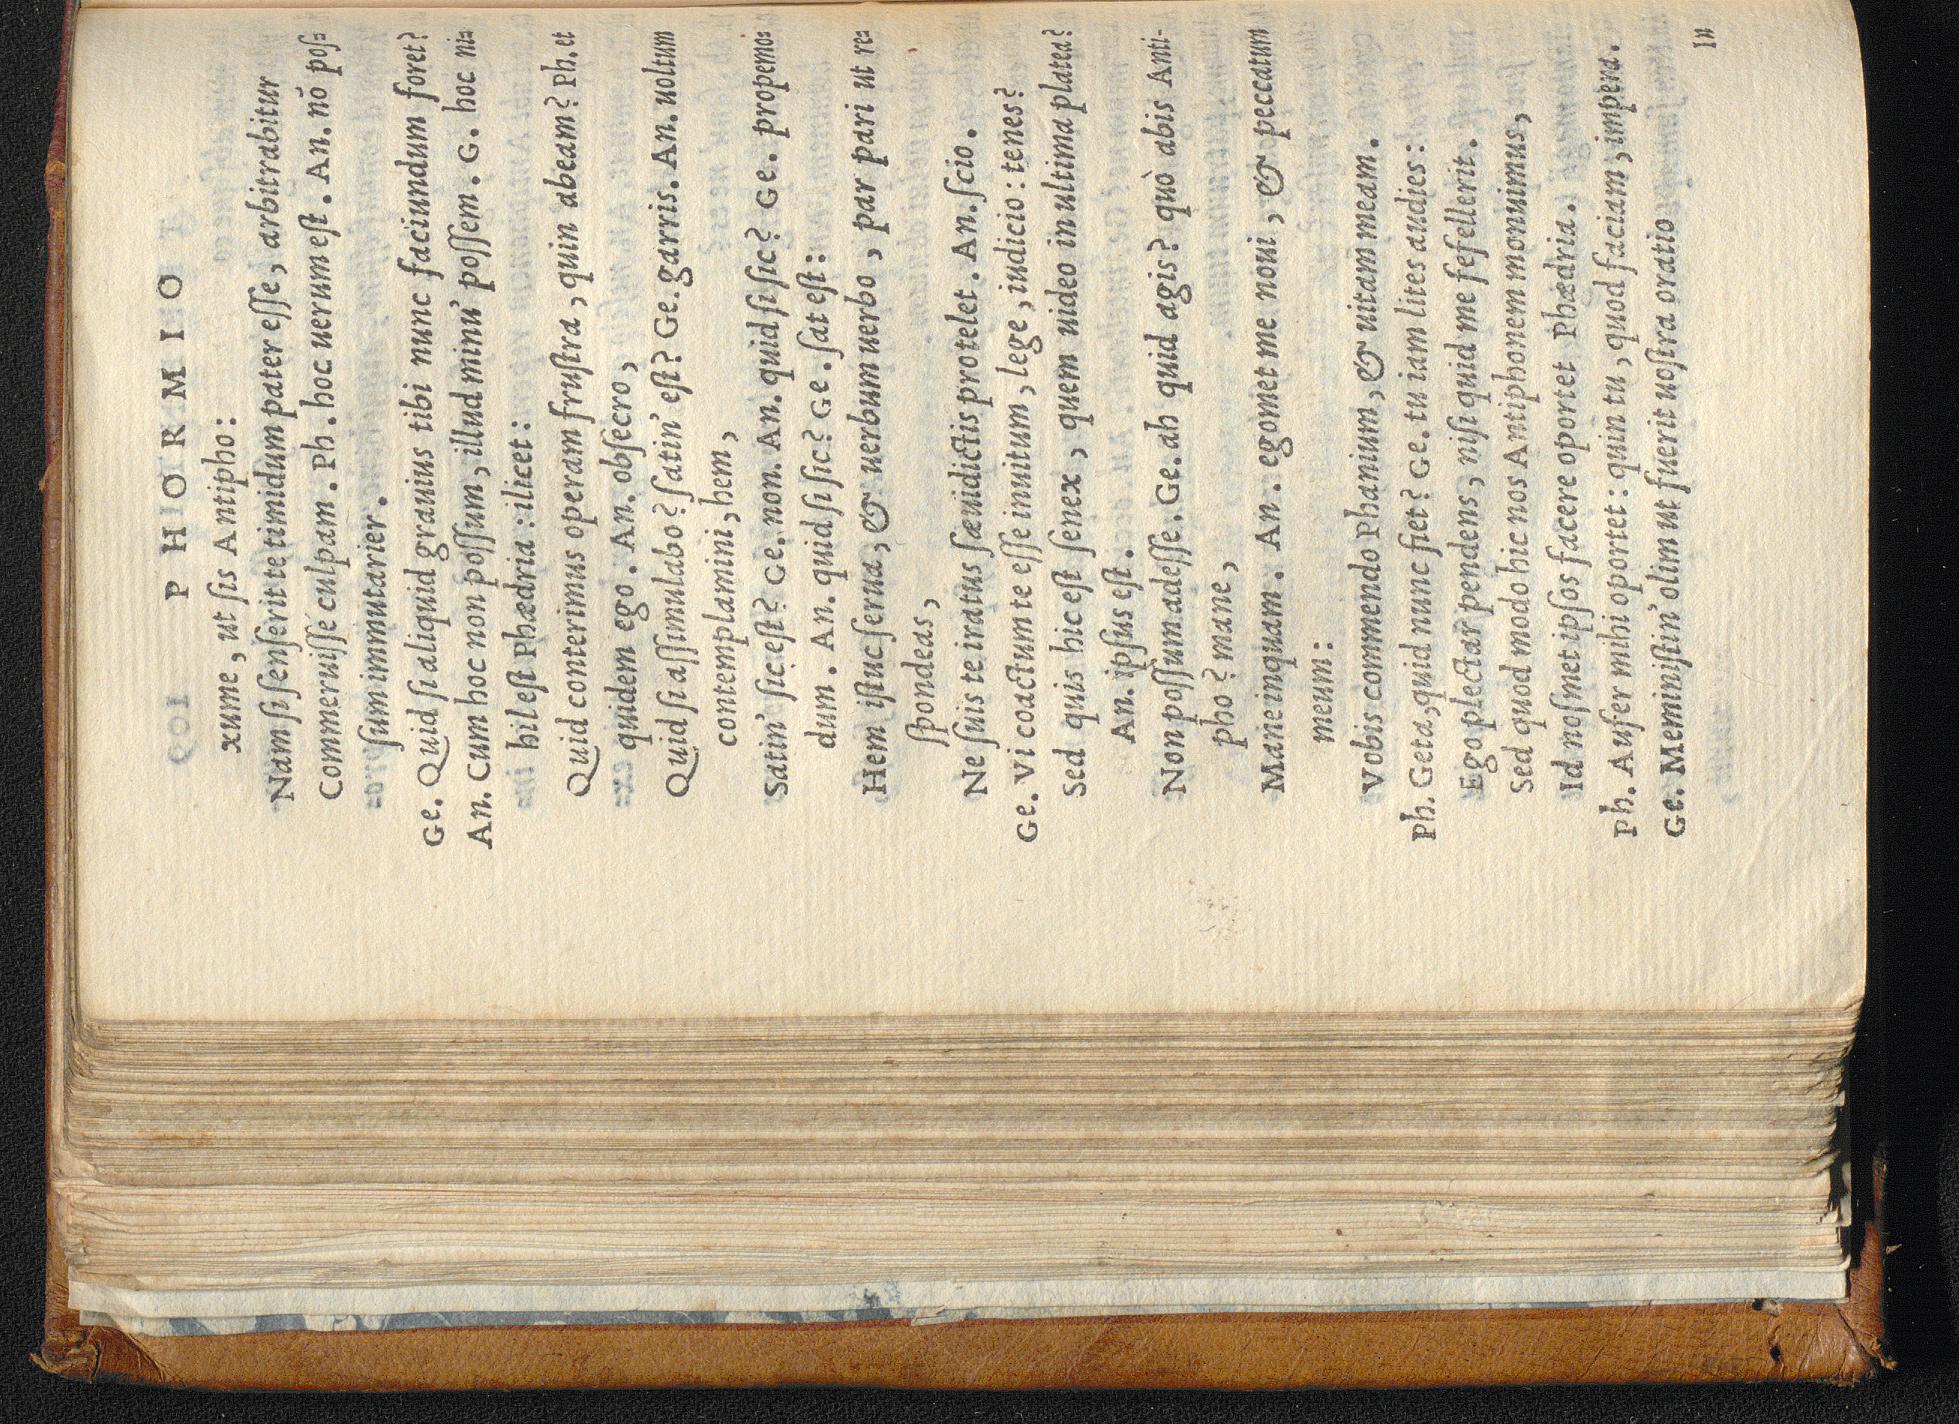 P H O R M I O
xume, ut ſis Antipho:
Nam ſi ſenſerit te timidum pater eſſe, arbitrabitur
Commeruiſſe culpam. Ph. hoc uerum eſt. An. nō poſ=
ſum immutarier.
Ge. Quid ſi aliquid grauius tibi nunc faciundum foret?
An. Cum hoc non poſſum, illud minu' poſſem. G. hoc ni=
hil eſt Phædria: ilicet:
Quid conterimus operam fruſtra, quin abeam? Ph. et
quidem ego. An. obſecro,
Quid ſi aſſimulabo? ſatin' eſt? Ge. garris. An. uoltum
contemplamini, hem,
Satin' ſic eſt? Ge. non. An. quid ſi ſic? Ge. propemo=
dum. An. quid ſi ſic? Ge. ſat eſt:
Hem iſtuc ſerua, & uerbum uerbo, par pari ut re=
ſpondeas,
Ne ſuis te iratus ſæuidictis protelet. An. ſcio.
Ge. Vi coactum te eſſe inuitum, lege, iudicio: tenes?
Sed quis hic eſt ſenex, quem uideo in ultima platea?
An. ipſus eſt.
Non poſſum adeſſe. Ge. ah quid agis? quò abis Anti-
pho? mane,
Mane inquam. An. egomet me noui, & peccatum
meum:
Vobis commendo Phanium, & uitam meam.
Ph. Geta, quid nunc fiet? Ge. tu iam lites audies:
Ego plectar pendens, niſi quid me fefellerit.
Sed quod modo hic nos Antiphonem monuimus,
Id noſmet ipſos facere oportet Phædria.
Ph. Aufer mihi oportet: quin tu, quod faciam, impera.
Ge. Meminiſtin' olim ut fuerit uoſtra oratio
In